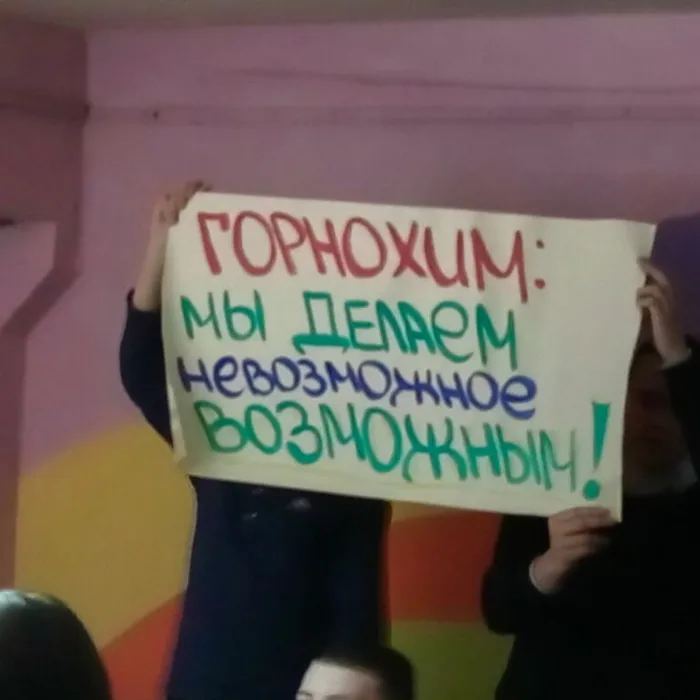 ГОРНОХИМ:
МЫ ДЕЛАЕМ
НЕВОЗМОЖНОЕ
ВОЗМОЖНЫМ!